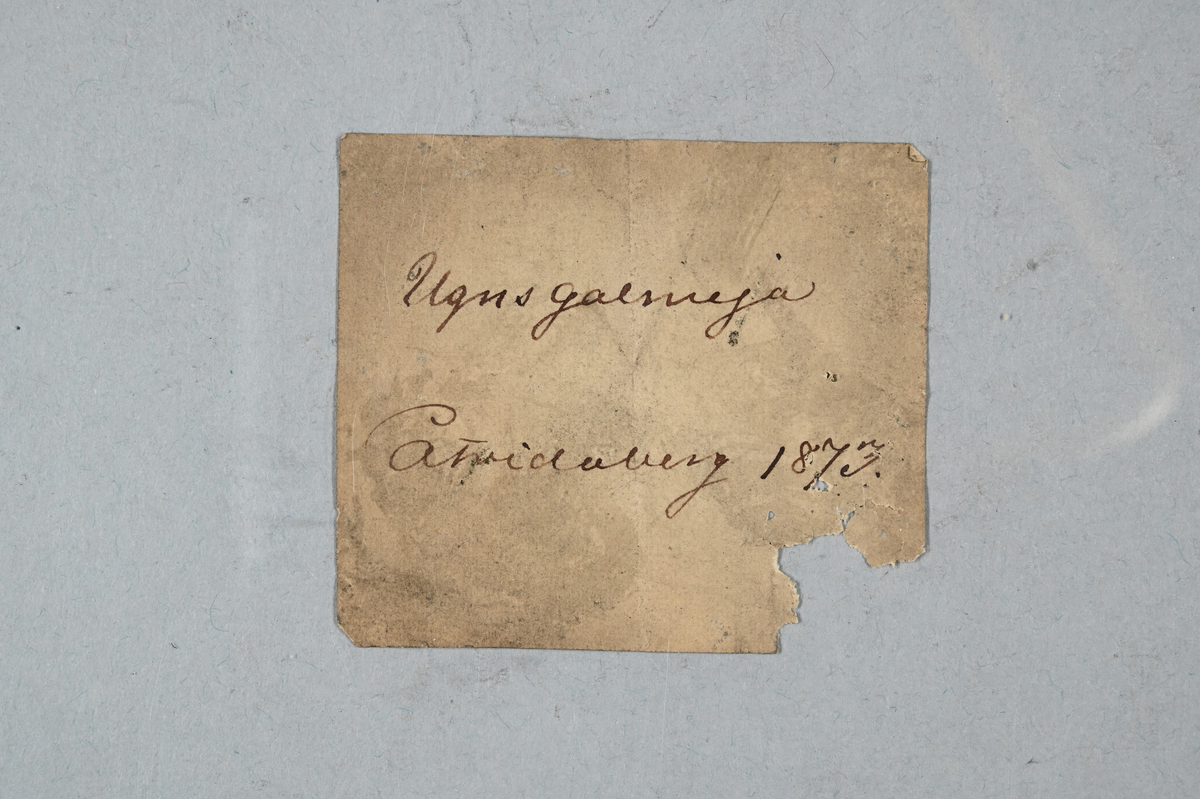 Ugnsgalmeja
Åtvidaberg 1873.